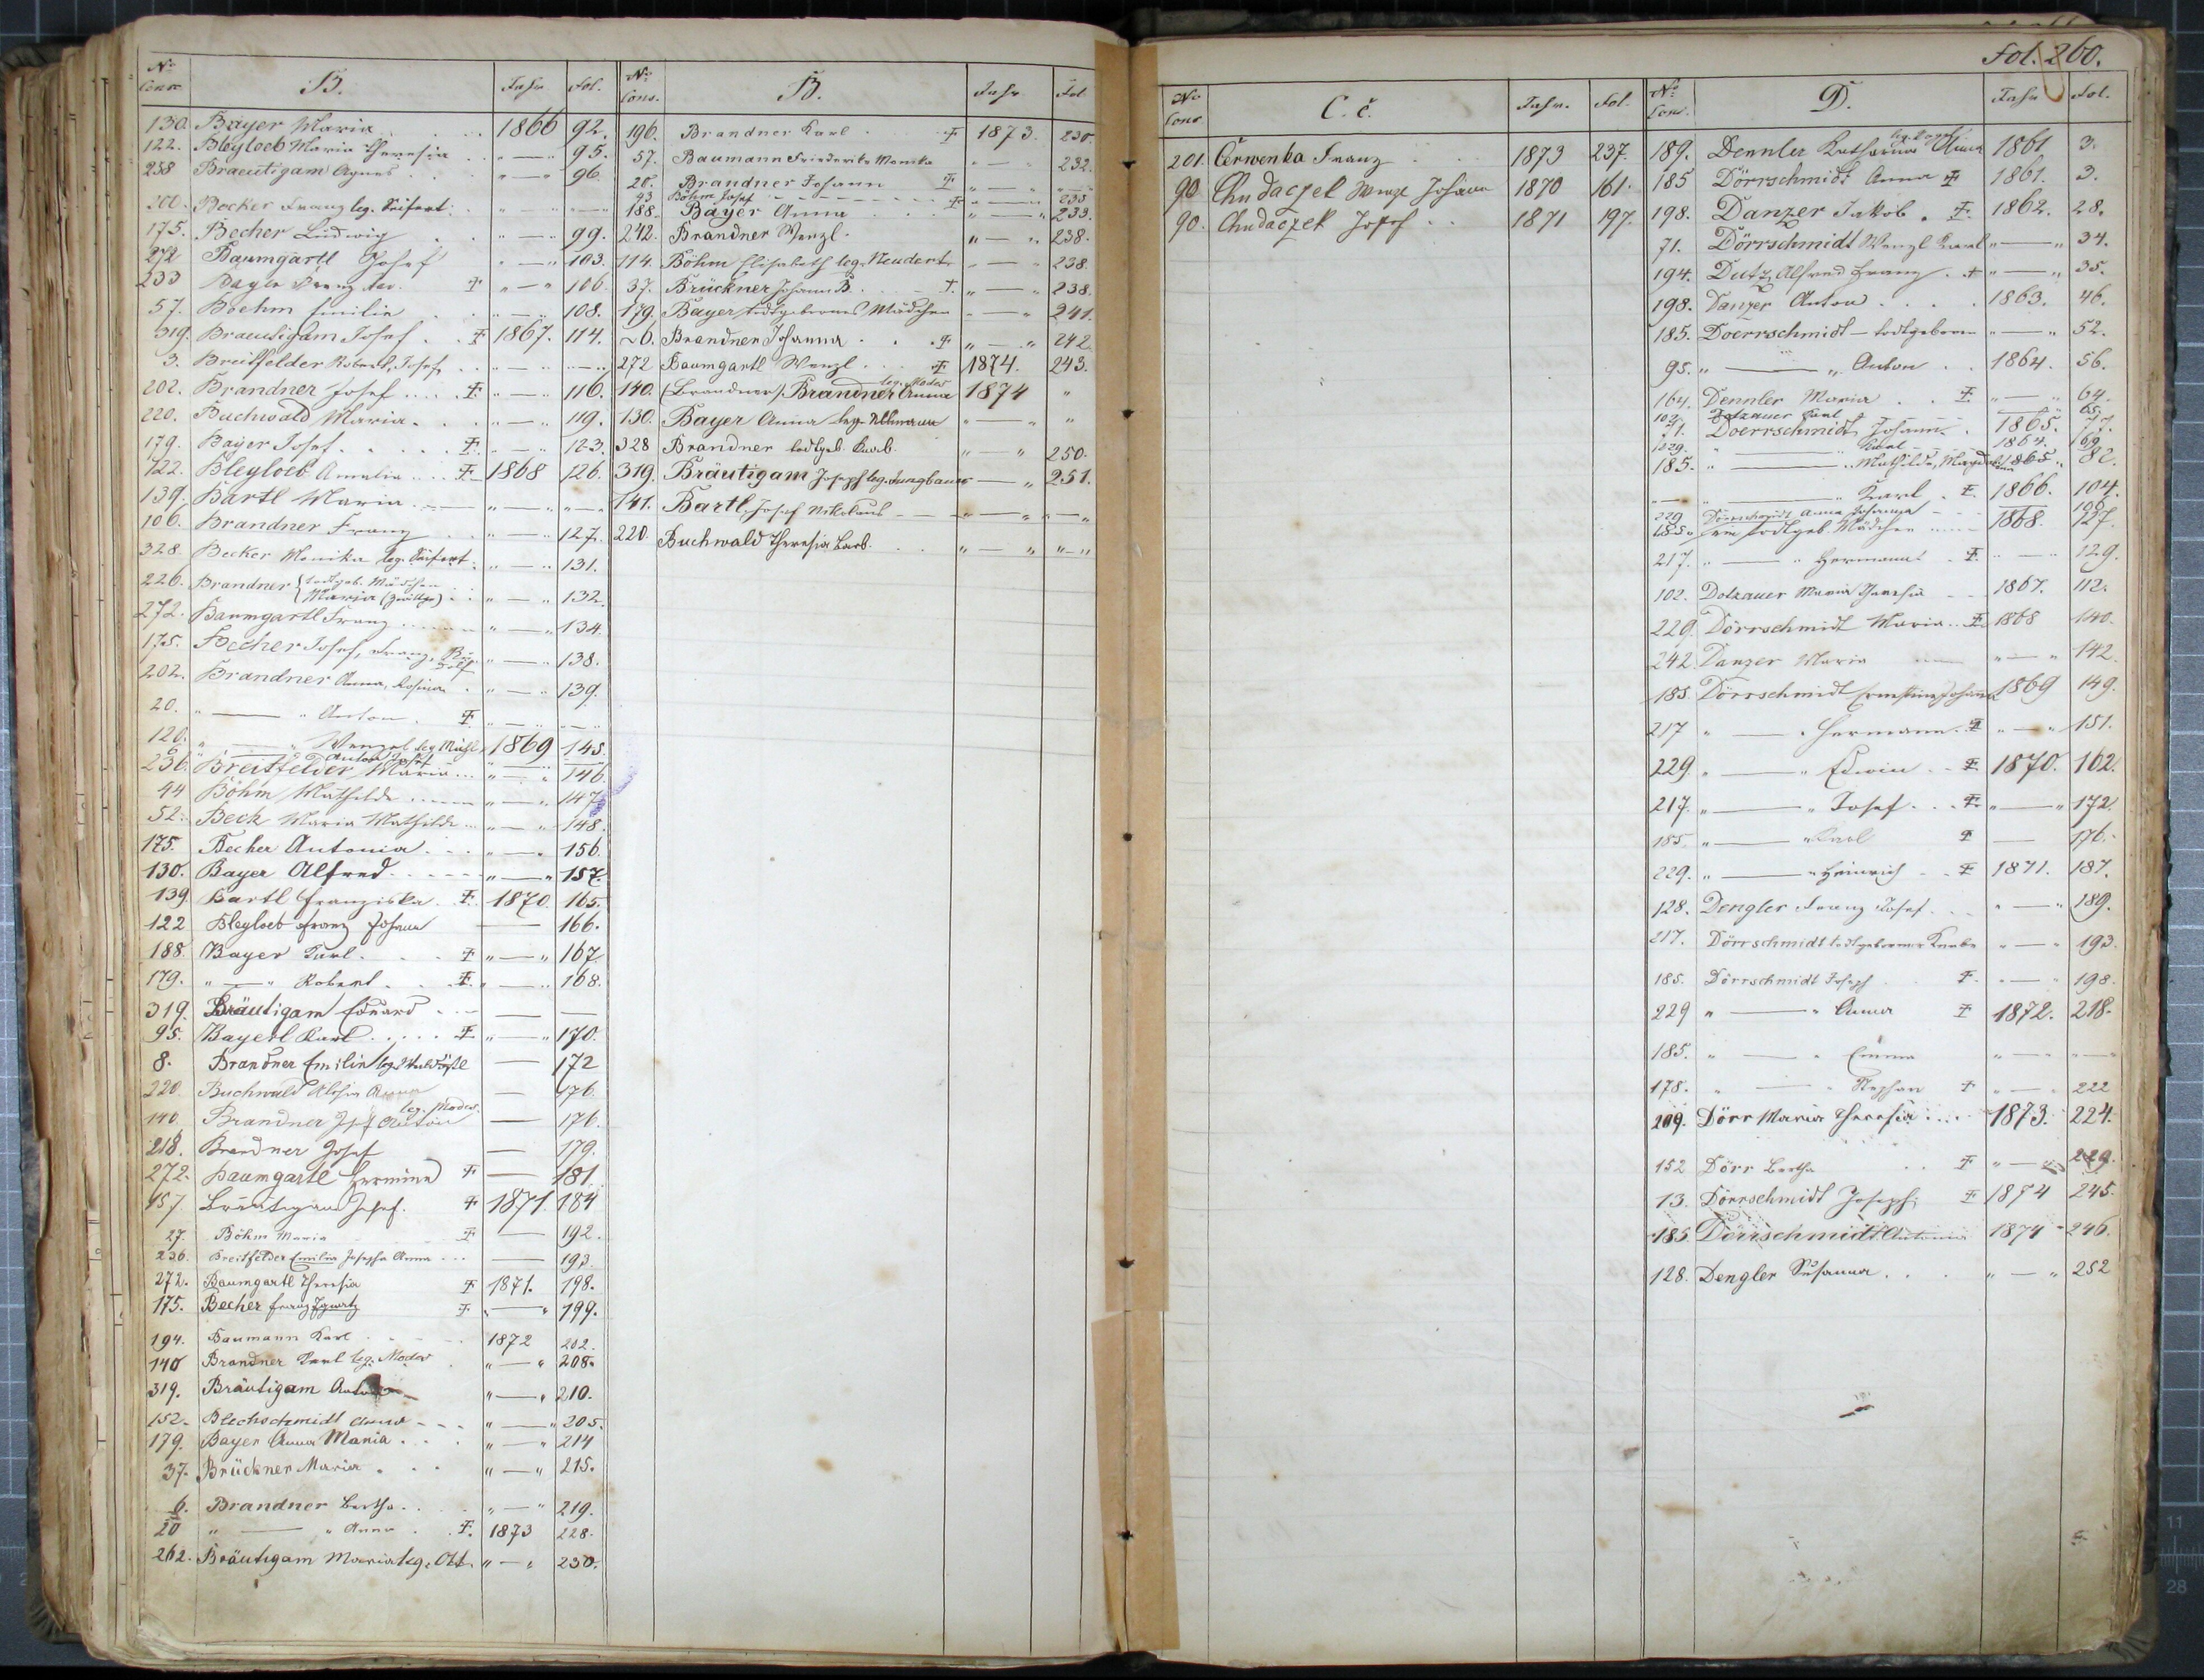 Fol. 260.
No Cons. B. Jahr Fol.
130. Bayer Maria 1866 92.
122. Bleyloeb Maria Theresia " — " 95.
238 Braeutigam Agnes " — " 96.
200. Becker Franz leg. Seifert " — " " — "
175. Becher Ludwig " — " 99.
272 Baumgärtl Josef " — " 103.
233 Bayer Franz " — " 106.
57. Boehm Emilie " — " 108.
319. Braeutigam Josef 1867. 114.
3. Breitfelder Robert, Josef " — " " — "
202. Brandner Josef " — " 116.
220. Buchwald Maria " — " 119.
179. Bayer Josef " — " 123.
122. Bleyloeb Amalia 1868 126.
139. Bartl Maria " — " " — "
106. Brandner Franz " — " 127.
328. Becker Monika leg. Seifert " — " 131.
226. Brandner { todtgeb. Mädchen
Maria (Zwillge) " — " 132.
272. Baumgartl Franz " — " 134.
175. Becher Josef, Franz, Rudolf " — " 138.
202. Brandner Anna, Rosina " — " 139.
20. " — " Anton " — " " — "
120. " — " Wenzel leg. 1869 145.
6 " Anton Josef
236. Breitfelder Maria " — " 146.
44 Böhm Mathilde " — " 147.
52. Beck Maria Mathilde " — " 148.
175. Becher Antonia " — " 156.
130. Bayer Alfred " — " 157.
139 Bartl Franziska 1870. 165.
122 Bleyloeb Franz Johann — 166.
188. Bayer Karl " — " 167.
179. " — " Robert " — " 168.
319. Bräutigam Eduard — —
95. Bayerl Karl " — " 170.
8. Brandner Emilie leg. — 172
220 Buchwald Anna — 176.
140. Brandner Josef Anton leg. Moder — 176.
218. Brandner Josef — 179.
272. Baumgartl Hermine — 181.
157. Bräutigam Josef. 1871. 184
27. Böhm Maria — 192.
236. Breitfelder Emilie Josepha Anna — 193.
272. Baumgartl Theresia 1871. 198.
175. Becher Franz Ignatz " — " 199.
194. Baumann Karl 1872 202.
140 Brandner Karl leg. Moder " — " 208.
319. Bräutigam " — " 210.
152. Blechschmidt Anna " — " 205.
179. Bayer Anna Maria " — " 214
37. Brückner Maria " — " 215.
6. Brandner Bertha " — " 219.
20 " — " Anna 1873 228.
262. Bräutigam Maria leg. Ott. " — " 230.
No Cons. B. Jahr Fol.
196. Brandner Karl 1873. 230.
57. Baumann Friederike Monika " — " 232.
26. Brandner Johann " — "
93 Böhm Josef " — " 235
188. Bayer Anna " — " 233.
242. Brandner Wenzl. " — " 238.
114. Böhm Elisabeth leg. Neudert " — " 238.
37. Brückner Johann B. " — " 238.
179. Bayer todtgebornes Mädchen " — " 241.
6. Brandner Johanna " — " 242.
272 Baumgartl Wenzl 1874. 243.
140. (Brandner) Brandner Anna leg. Moder 1874 "
130. Bayer Anna leg. " — " "
328 Brandner todtgeb. Knab. " — " 250.
319. Bräutigam Joseph leg. Jungbauer " — " 251.
141. Bartl, Josef Nikolaus " — " " — "
220. Buchwald Theresia Barb. " — " " — "
No Cons C. č. Jahr. Fol.
201. Čerwenka Franz 1873 237.
90. Chudaczek Wenzl Johann 1870 161.
90. Chudaczek Josef 1871 197.
No Cons. D. Jahr Fol.
189. Dennler Katharina Anna 1861 3.
185 Dörrschmidt Anna 1861. 3.
198. Danzer Jakob 1862. 28.
71. Dörrschmidt Wenzl Karl " — " 34.
194. Dutz Alfred Franz " — " 35.
198. Danzer Anton 1863. 46.
185. Doerrschmidt — todtgeboren " — " 52.
95. " — " Anton 1864. 56.
164. Dennler Maria " — " 64.
102. Dotzauer Karl " 65.
71. Doerrschmidt Johann 1865. 77.
229. " — " Karl 1864. 169
185. " — " Mathilde, 1865. 82.
" — " " — " Karl 1866. 104.
229 Dörrschmidt Anna Johanna 106.
185. " ein todtgeb. Mädchen 1868. 127.
217. " — " Hermann " — " 129.
102. Dotzauer Maria Theresia 1867. 112.
229. Dörrschmidt Maria 1868 140.
242. Danzer Maria " — " 142.
185. Dörrschmidt Ernestine Johanna 1869 149.
217 " — " Hermann " — " 151.
229. " — " Edwin 1870. 162.
217. " — " Josef " — " 172.
185. " — " Karl — 176.
229. " — " Heinrich 1871. 187.
128. Dengler Franz Josef " — " 189.
217. Dörrschmidt todtgeborner Knabe " — " 193.
185. Dörrschmidt Joseph " — " 198.
229 " — " Anna 1872. 218.
185. " — " Emma " — " " — "
178. " — " Stephan " — " 222
209. Dörr Maria Theresia 1873. 224.
152 Dörr Bertha " — " 229.
13. Dörrschmidt Joseph 1874 245.
185 Dörrschmidt Antonia 1874 246.
128. Dengler Susanna " — " 252
11
28